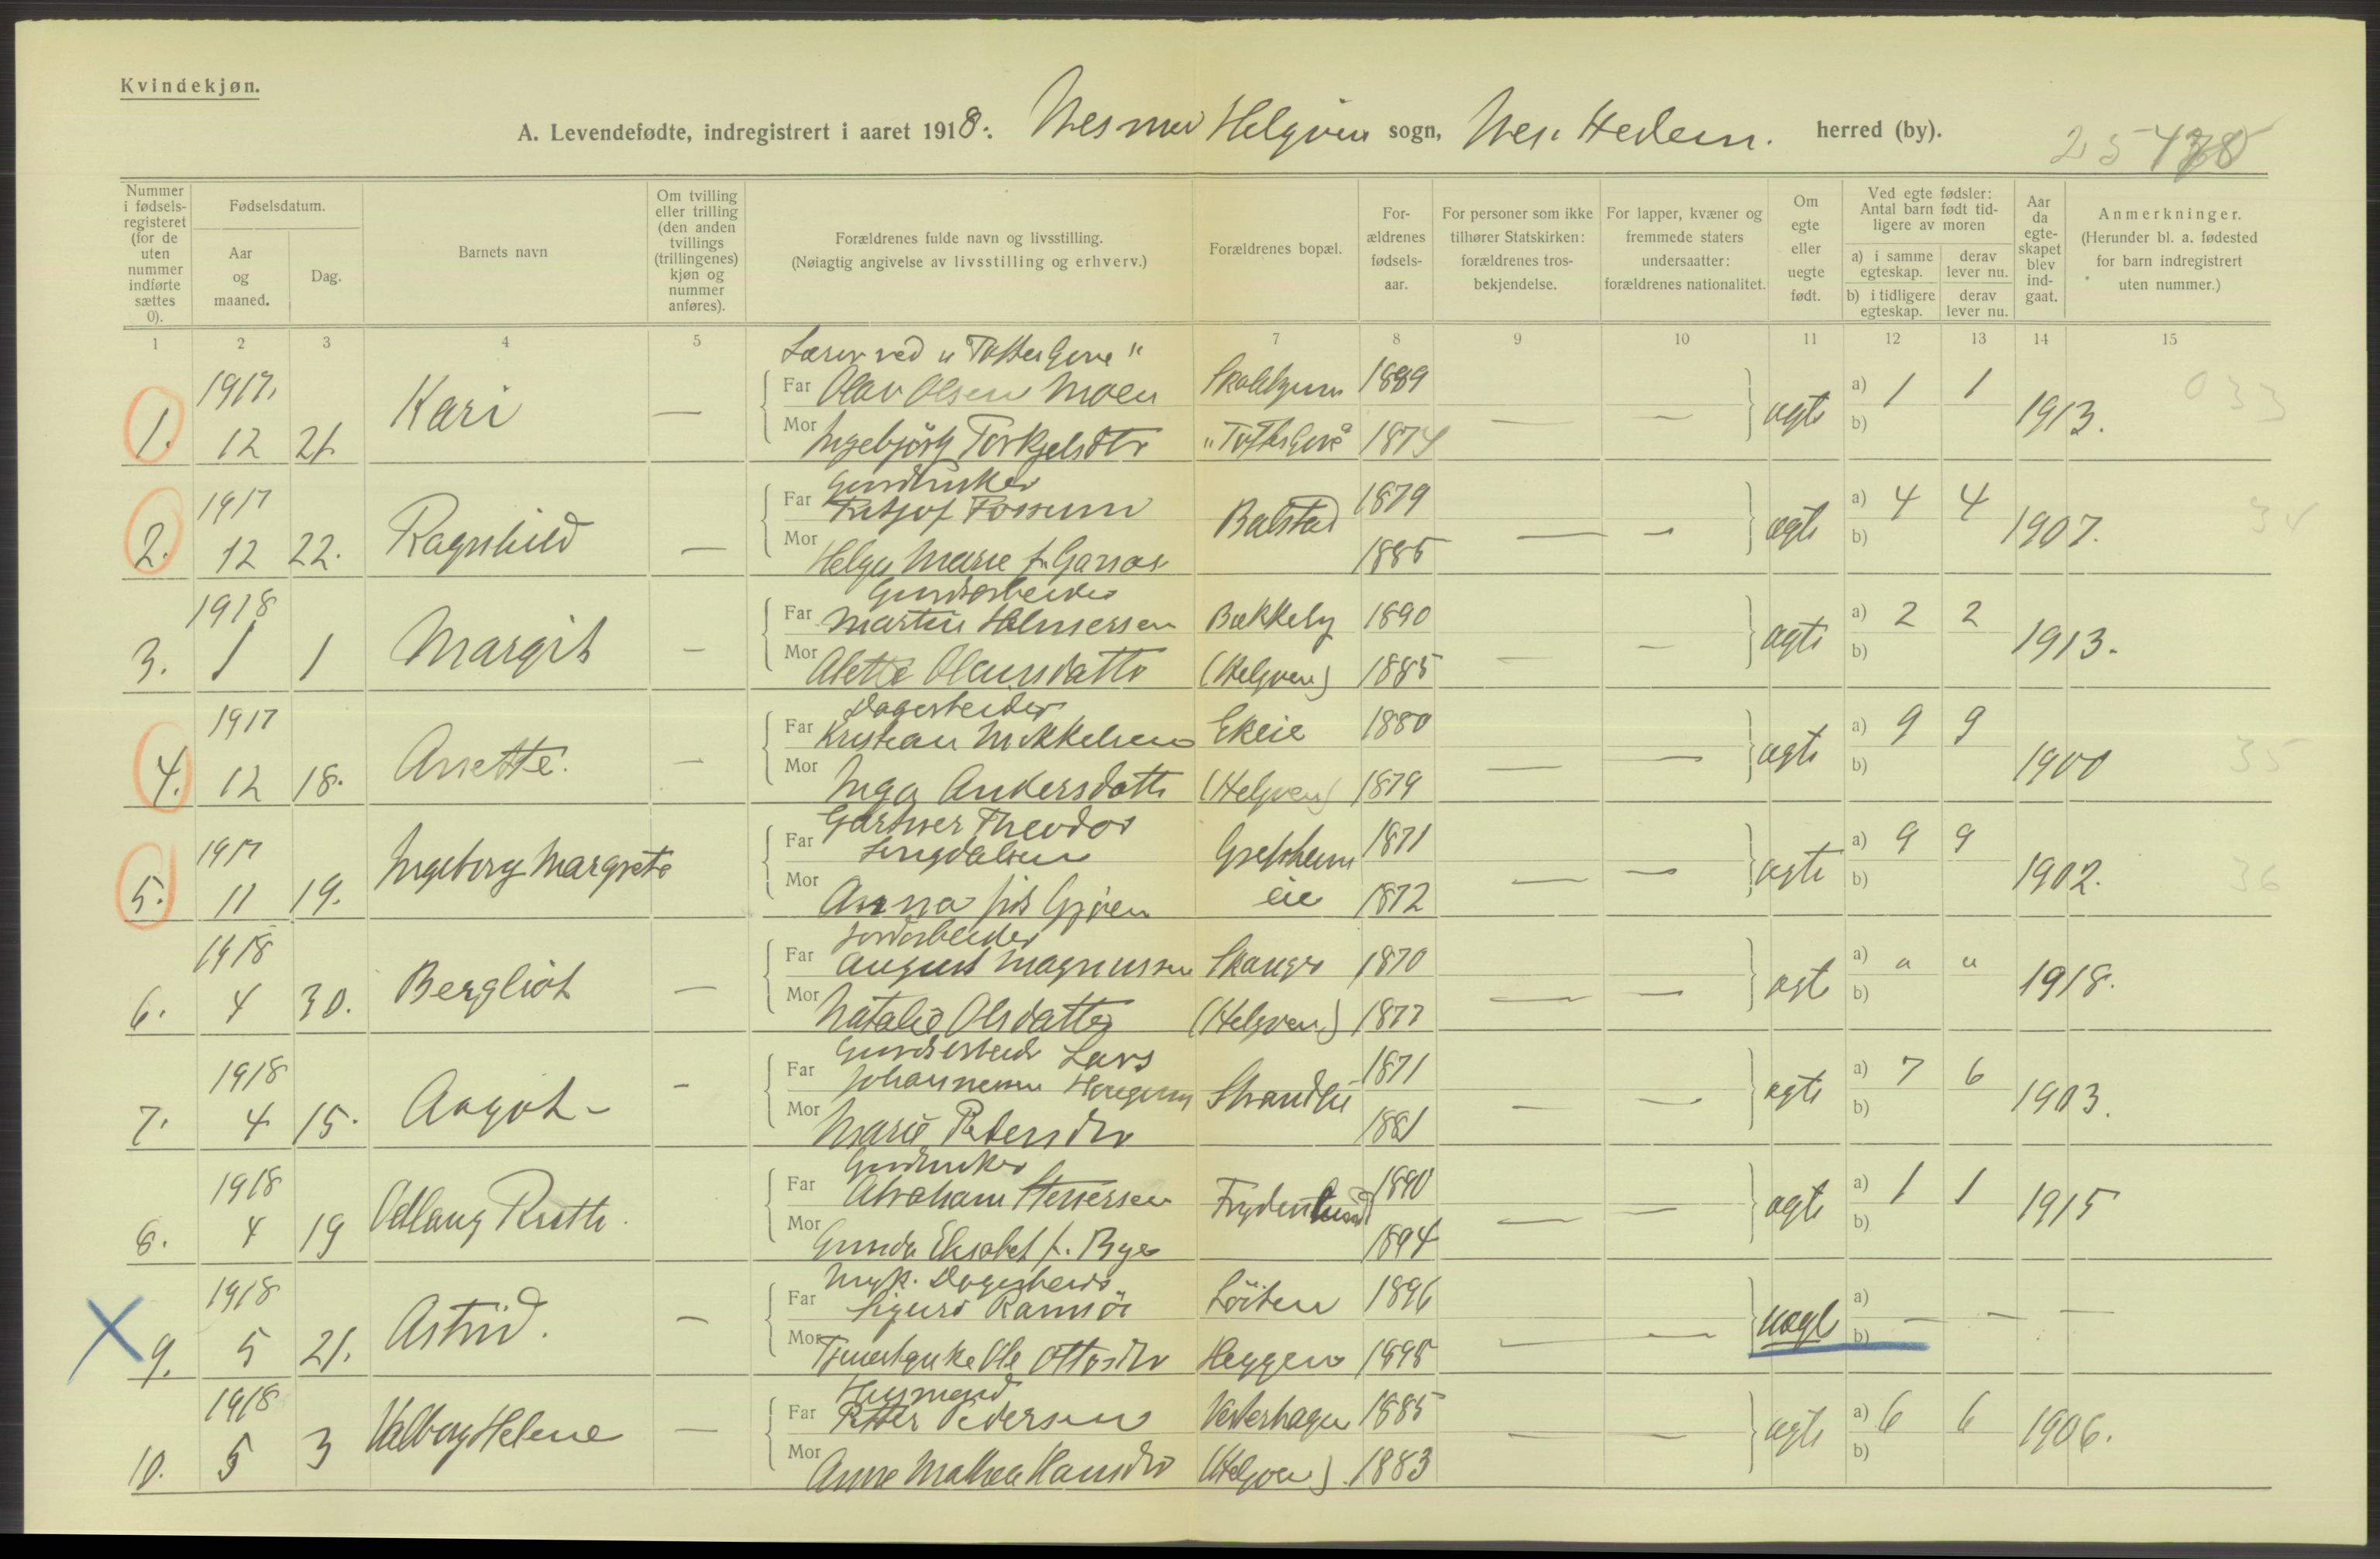 Kvindekjøn.
A. Levendefødte, indregistrert i aaret 1918. Nes med Helgøen sogn, Nes. Hedem. herred (by).
Nummer i fødsels-registeret (for de uten nummer indførte sættes 0).
Fødselsdatum.
Aar og maaned.
Dag.
Barnets navn
Om tvilling eller trilling (den anden tvillings (trillingenes) kjøn og nummer anføres).
Forældrenes fulde navn og livsstilling.
(Nøiagtig angivelse av livsstilling og erhverv.)
Forældrenes bopæl.
For-ældrenes fødsels-aar.
For personer som ikke tilhører Statskirken: forældrenes tros-bekjendelse.
For lapper, kvæner og fremmede staters undersaatter: forældrenes nationalitet.
Om egte eller uegte født.
Ved egte fødsler: Antal barn født tid-ligere av moren
a) i samme egteskap. derav lever nu.
b) i tidligere egteskap. derav lever nu.
Aar da egte-skapet blev ind-gaat.
Anmerkninger.
(Herunder bl. a. fødested for barn indregistrert uten nummer.)
1 2 3 4 5 7 8 9 10 11 12 13 14 15
Lærer ved "Toftes Gave"
1917. Far Olav Olsen Moen 1889 a) 1 1 033
1. 12 21. Kari — Mor Ingebjörg Torkjelsdtr "Toftes Gave" 1874 — — egte b) 1913.
Gardbruker
1917 Far Fritjof Fossum 1879 a) 4 4 34
2. 12 22. Ragnhild — Mor Helga Marie f. Balstad 1885 — — egte b) 1907.
Gardsarbeider
1918 Far Martin Halmersen Bækkeby 1890 a) 2 2
3. 1 1 Margit — Mor Alette Olausdattr (Helgøen) 1885 — — egte b) 1913.
Dagarbeider
1917 Far Kristian Mikkelsen Ekeie 1880 a) 9 9 35
4. 12 18. Anette. — Mor Inga Andersdattr (Helgøen) 1879 — — egte b) 1900
Gartner Theodor
1917 Far Lingdalsen Grefsheim 1871 a) 9 9 36
5. 11 19. Ingeborg Margrete Mor Anna eie 1872 — — egte b) 1902.
Jordarbeider
1918 Far August Magnussen 1870 a) " "
6. 4 30. Bergliot — Mor Natalie Olsdatter (Helgøen) 1877 — — egte b) 1918.
Gardsarbeider Lars
1918 Far Johannessen 1871 a) 7 6
7. 4 15. Aagot — Mor Marie Petersdtr 1881 — — egte b) 1903.
Gardbruker
1918 Far Abraham 1890 a) 1 1
8. 4 19 Ruth. Mor Gunda Elisabet f. Bye Frydenlund 1894 — — egte b) 1915
Ungk. Dagarbeider
1918 Far Sigurd Ramsöi Löiten 1896 a)
X 9. 5 21. Astrid. — Mor Tjenestepike Ottosdtr Heggen 1895 — — uegte b) — — —
Husmand
1918 Far Petter Pedersen Vesterhagen 1885 a) 6 6
10. 5 3 Valborg Helene — Mor Anne Mathea Hansdtr (Helgøen) 1883 — — egte b) 1906.